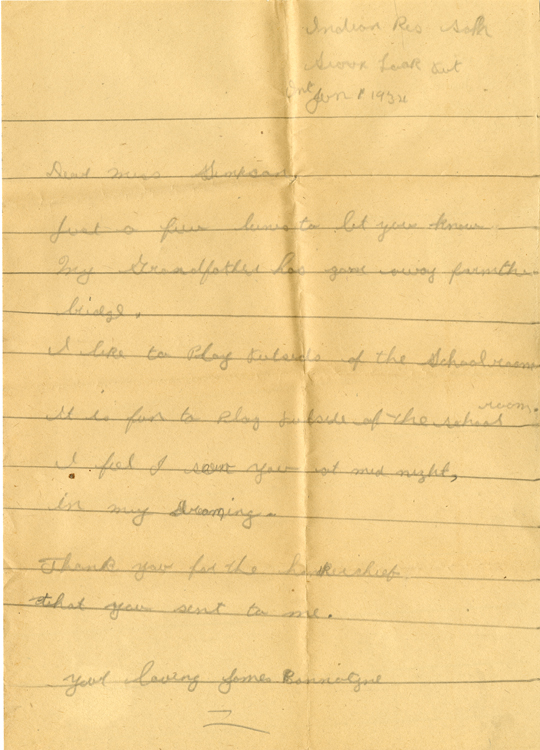 Indian Res. Schl
Sioux Look Out
Ont Jun 1 1934
Dear Miss Simpson,
Just a few lines to let you know
My Grandfather has gone away from the
bridge.
I like to Play outside of the School room
It is fun to Play outside of the school room.
I feel I seen you at mid night,
in my Dreaming.
Thank you for the
that you sent to me.
your loving James Bannatyne